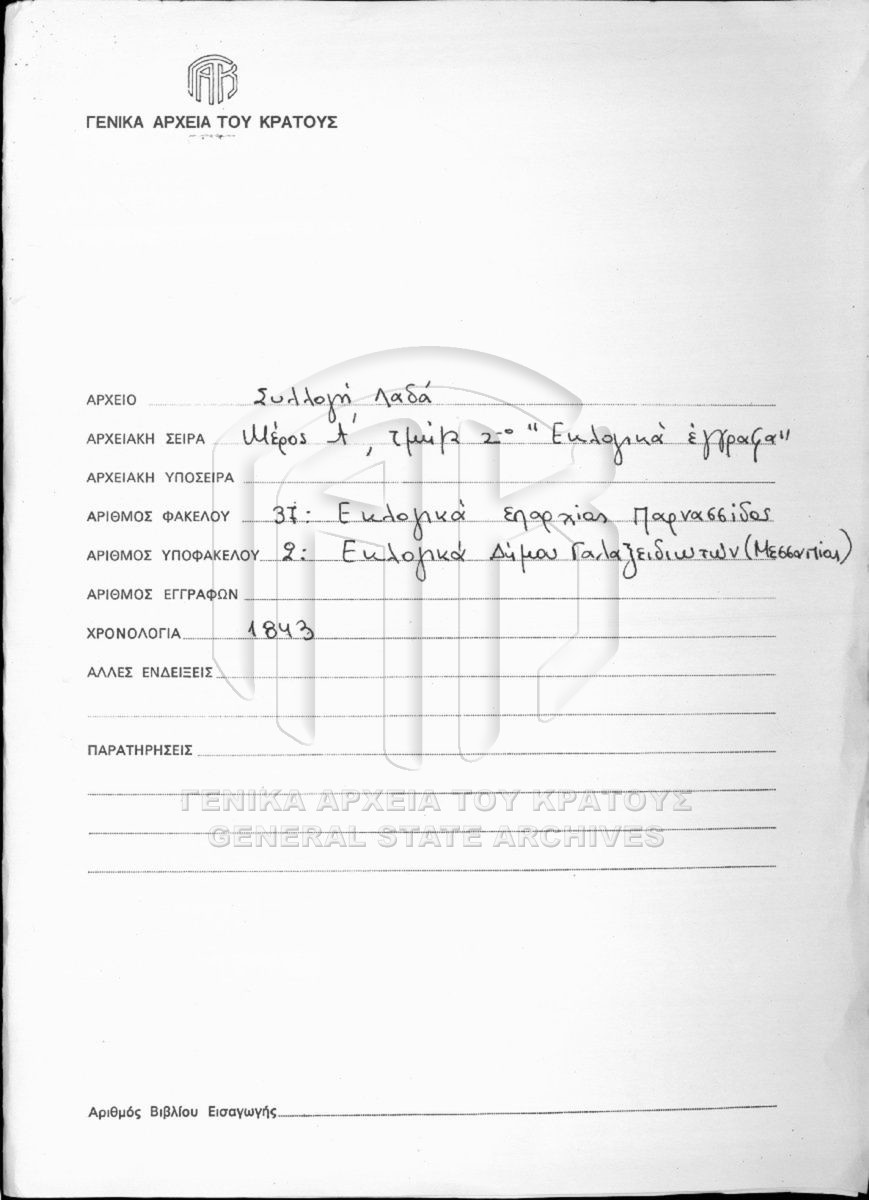 ΓΑΚ
ΓΕΝΙΚΑ ΑΡΧΕΙΑ ΤΟΥ ΚΡΑΤΟΥΣ
ΑΡΧΕΙΟ Συλλογή Λαδά
ΑΡΧΕΙΑΚΗ ΣΕΙΡΑ Μέρος Α', τμήμα 2ο "Εκλογικά έγγραφα"
ΑΡΧΕΙΑΚΗ ΥΠΟΣΕΙΡΑ
ΑΡΙΘΜΟΣ ΦΑΚΕΛΟΥ 37: Εκλογικά επαρχίας Παρνασσίδος
ΑΡΙΘΜΟΣ ΥΠΟΦΑΚΕΛΟΥ 2: Εκλογικά Δήμου Γαλαξειδιωτών (Μεσσαπίας)
ΑΡΙΘΜΟΣ ΕΓΓΡΑΦΩΝ
ΧΡΟΝΟΛΟΓΙΑ 1843
ΑΛΛΕΣ ΕΝΔΕΙΞΕΙΣ
ΠΑΡΑΤΗΡΗΣΕΙΣ
ΓΕΝΙΚΑ ΑΡΧΕΙΑ ΤΟΥ ΚΡΑΤΟΥΣ
GENERAL STATE ARCHIVES
Αριθμός Βιβλίου Εισαγωγής